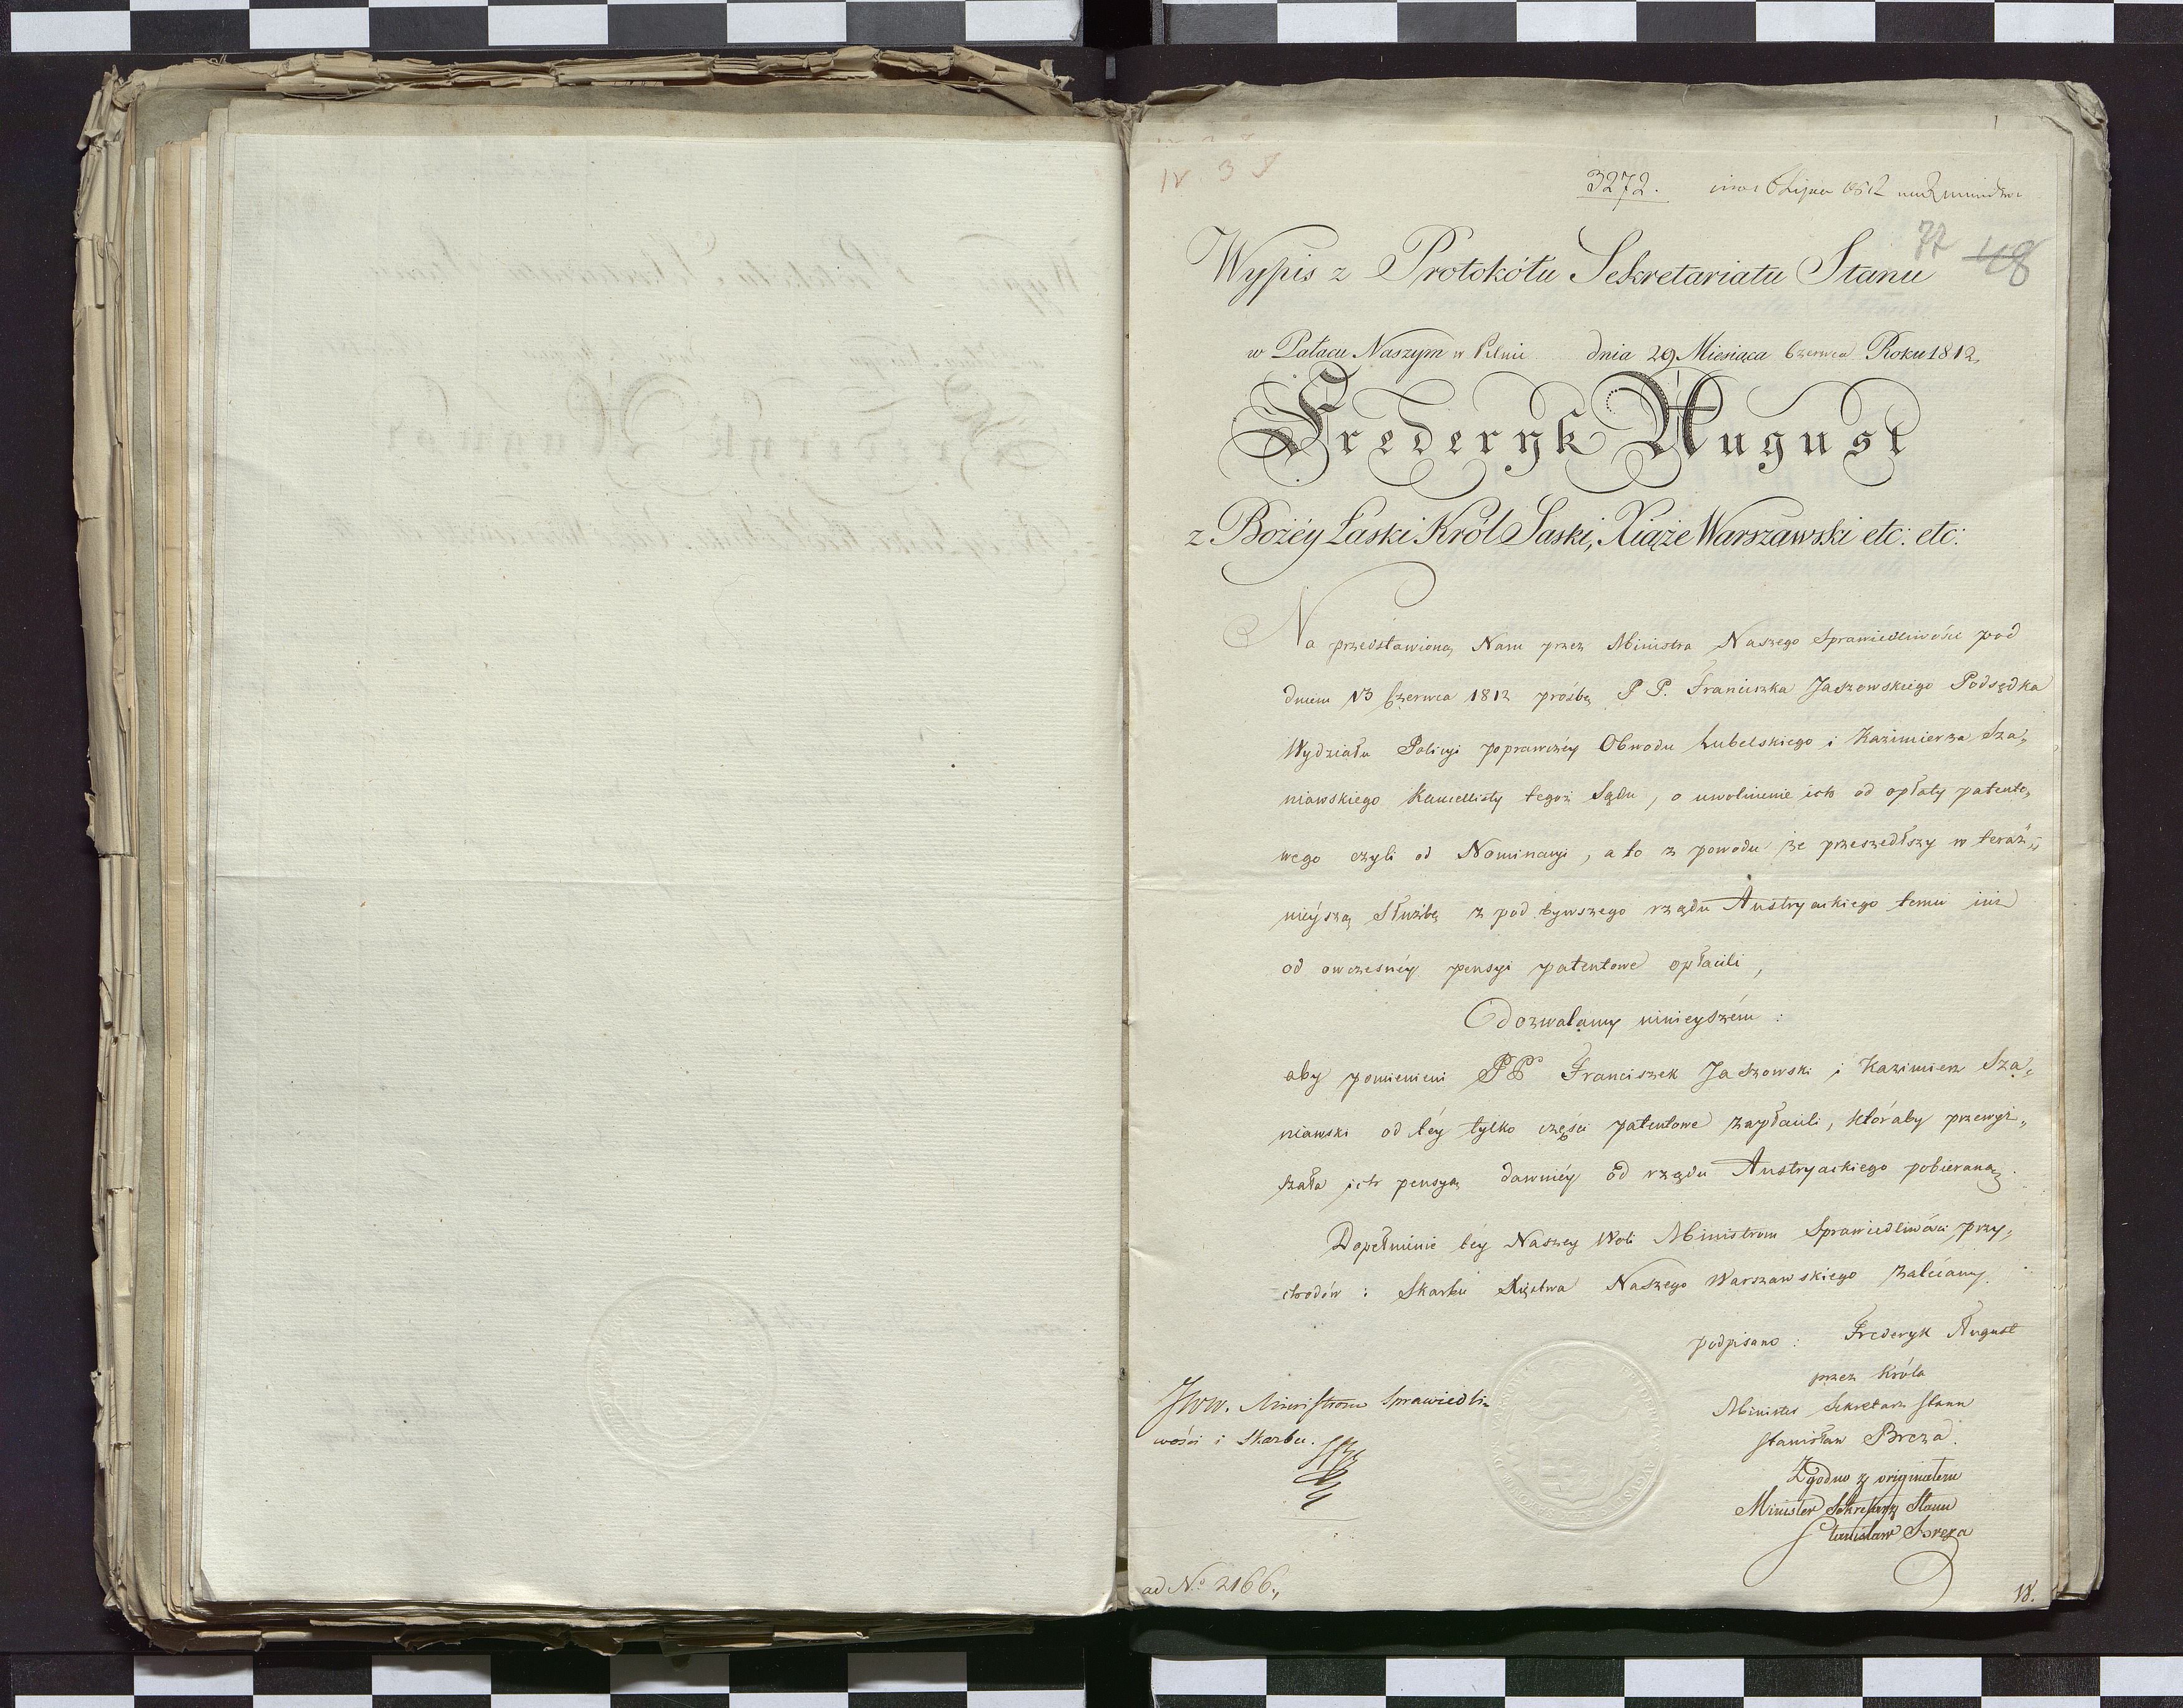 IV. 3
3272. 6 Lipca 1812
77 48
Wypis z Protokółu Sekretariatu Stanu
w Pałacu Naszym w Pilnic dnia 29 Miesiąca Czerwca Roku 1812
Frederyk August
z Bożéy Łaski Król Saski, Xiąże Warszawski etc: etc:
Na przedstawioną Nam przez Ministra Naszego Sprawiedliwości pod
dniem 13 Czerwca 1812 prośbę P P. Franciszka Jaszowskiego Podsędka
Wydziału Policyi poprawczéy Obwodu Lubelskiego i Kazimierza Sza„
niawskiego Kancellisty tegoż Sądu, o uwolnienie ich od opłaty patento„
wego czyli od Nominacyi, a to z powodu że przeszedłszy w teraz„
niéyszą Służbę z pod bywszego rządu Austryackiego temu iuż
od owczesnéy pensyi patentowe opłacili,
Dozwalamy ninieyszém:
aby pomienieni PP Franciszek Jaszowski i Kazimierz Sza„
niawski od téy tylko części patentowe zapłacili, któraby przewyż„
szała ich pensyą dawniéy od rządu Austryackiego pobieraną.
Dopełnienie téy Naszey Woli Ministrom Sprawiedliwości przy„
chodów i Skarbu Xięstwa Naszego Warszawskiego zalecamy.
podpisano: Frederyk August
przez Króla
Minister Sekretarz Stanu
Stanisław Breza.
Zgodno z originałem
Minister Sekretarz Stanu
Stanisław Breza
JWW. Ministrom Sprawiedli„
wości i Skarbu.
ad No. 2166.,
18.